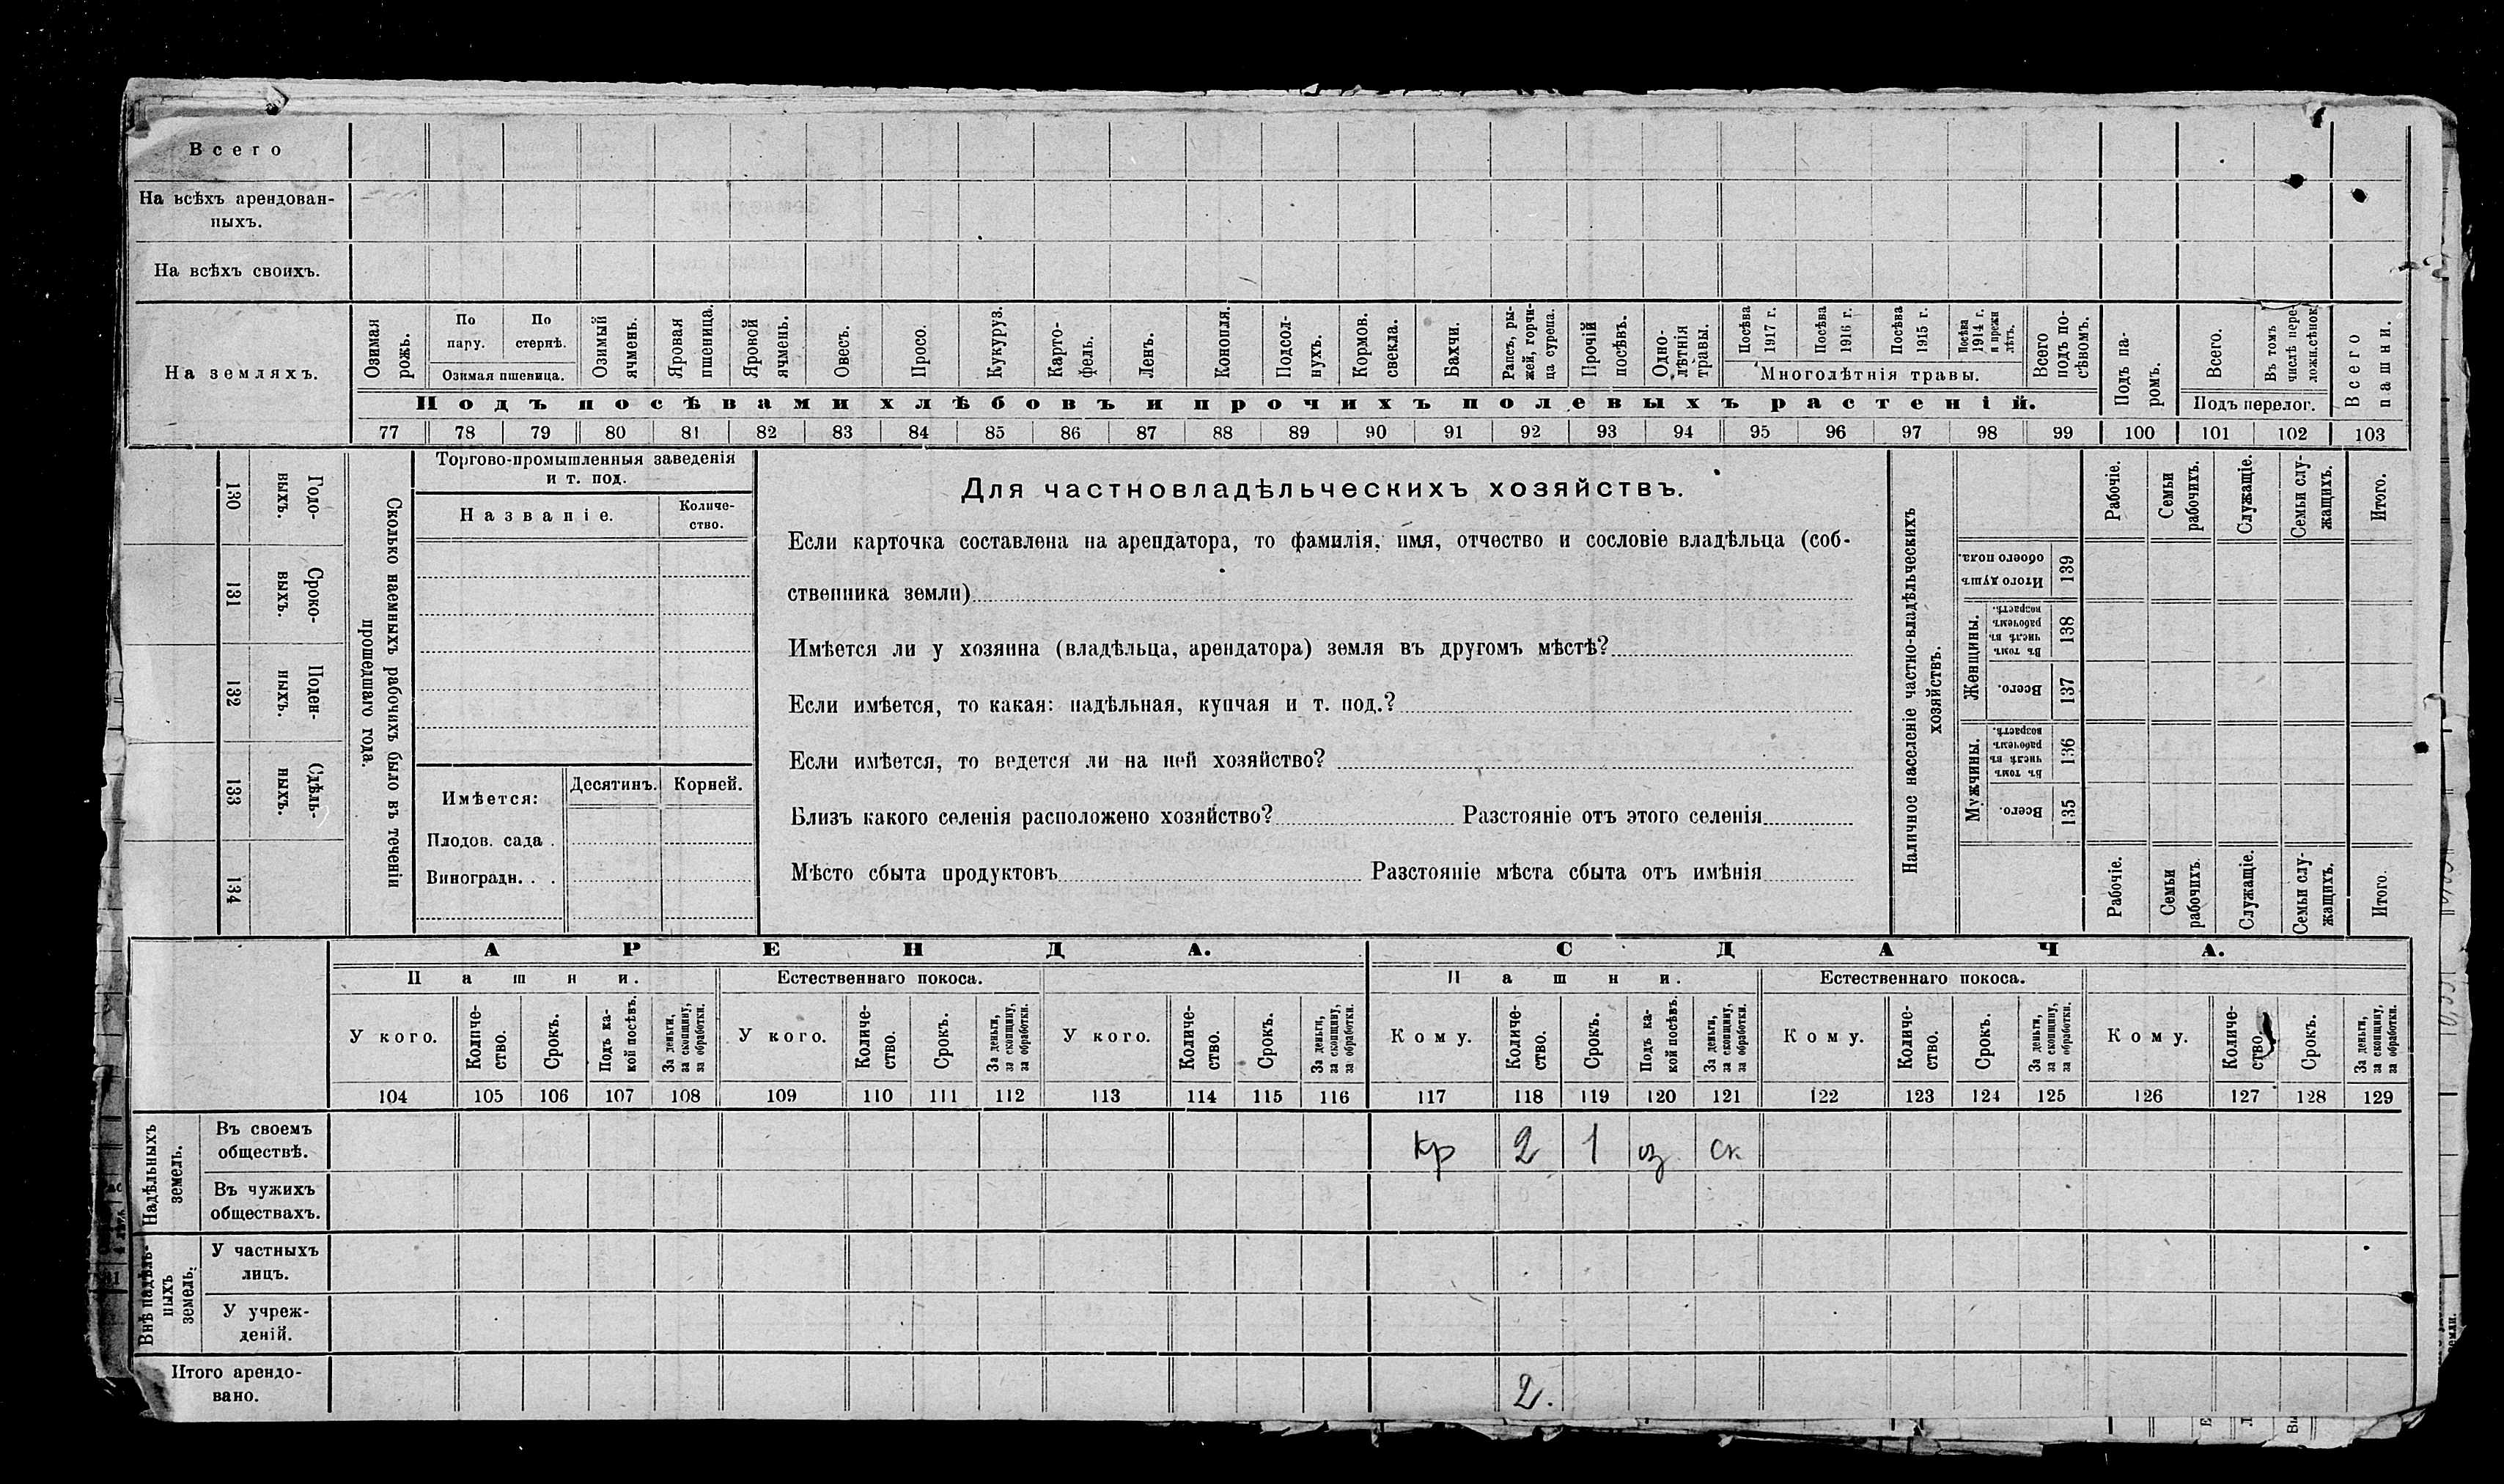 Всего
На всѣхъ арендован-
ныхъ.
На всѣхъ своихъ.
На земляхъ.
Озимая рожь.
По пару.
По стернѣ.
Озимая пшеница.
Озимый ячмень.
Яровая пшеница.
Яровой ячмень.
Овесъ.
Просо.
Кукуруз.
Карто-
фель.
Ленъ.
Конопля.
Подсол-
нухъ.
Кормов. свекла.
Бахчи.
Рапсъ, ры-
жей, горчи-
ца сурепа.
Прочій посѣвъ.
Одно-
лѣтнія травы.
Посѣва 1917 г.
Посѣва 1916 г.
Посѣва 1915 г.
Посѣва 1914 г. и прежн лѣтъ.
Многолѣтнія травы.
Всего подъ по-
сѣвомъ.
Подъ посѣвами хлѣбовъ и прочихъ полевыхъ растеній.
Подъ па-
ромъ.
Всего.
Въ томъ числѣ пере-
ложн.сѣнок.
Подъ перелог.
Всего пашни.
77 78 79 80 81 82 83 84 85 86 87 88 89 90 91 92 93 94 95 96 97 98 99 100 101 102 103
130 Годо-
выхъ.
131 Сроко-
выхъ.
132 Поден-
ныхъ.
133 Сдѣль-
ныхъ.
134
Сколько наемныхъ рабочихъ было въ теченіи
прошедшаго года.
Торгово-промышленныя заведенія
и т. под.
Названіе.
Количе-
ство.
Имѣется:
Десятинъ.
Корней.
Плодов. сада .
Виноградн. . .
Для частновладѣльческихъ хозяйствъ.
Если карточка составлена на арендатора, то фамилія, имя, отчество и сословіе владѣльца (соб-
ственника земли)
Имѣется ли у хозяина (владѣльца, арендатора) земля въ другомъ мѣстѣ?
Если имѣется, то какая: надѣльная, купчая и т. под.?
Если имѣется, то ведется ли на ней хозяйство?
Близъ какого селенія расположено хозяйство? Разстояніе отъ этого селенія
Мѣсто сбыта продуктовъ Разстояніе мѣста сбыта отъ имѣнія
Наличное населеніе частно-владѣльческихъ
хозяйствъ.
Рабочіе.
Семьи рабочихъ.
Служащіе.
Семьи слу-
жащихъ.
Итого.
Итого душъ обоего пола. 139
Женщины.
Въ томъ числѣ въ рабочемъ возрастѣ. 138
Всего. 137
Мужчины.
Въ томъ числѣ въ рабочемъ возрастѣ. 136
Всего. 135
Рабочіе.
Семьи рабочихъ.
Служащіе.
Семьи слу-
жащихъ.
Итого.
АРЕНДА. СДАЧА.
Пашни. Естественнаго покоса. Пашни. Естественнаго покоса.
У кого.
Количе-
ство.
Срокъ.
Подъ ка-
кой посѣвъ.
За деньги, за скопщину, за обработки.
У кого.
Количе-
ство.
Срокъ.
За деньги, за скопщину, за обработки.
У кого.
Количе-
ство.
Срокъ.
За деньги, за скопщину, за обработки.
Кому.
Количе-
ство.
Срокъ.
Подъ ка-
кой посѣвъ.
За деньги, за скопщину, за обработки.
Кому.
Количе-
ство.
Срокъ.
За деньги, за скопщину, за обработки.
Кому.
Количе-
ство.
Срокъ.
За деньги, за скопщину, за обработки.
104 105 106 107 108 109 110 111 112 113 114 115 116 117 118 119 120 121 122 123 124 125 126 127 128 129
Надѣльныхъ
земель.
Въ своемъ
обществѣ.
кр 2 1 оз ск
Въ чужихъ
обществахъ.
Внѣ надѣль-
ныхъ
земель.
У частныхъ
лицъ.
У учреж-
деній.
Итого арендо-
вано.
2.